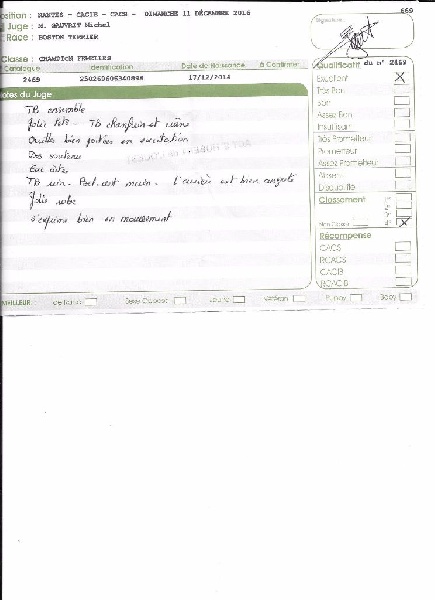 669
osition : NANTES - CACIB - CACS - DIMANCHE 11 DÉCEMBRE 2016
Juge : M. GAUVRIT Michel
Race : BOSTON TERRIER
Signature :
Classe : CHAMPION FEMELLES
Catalogue Identification Date de Naissance à Confirmer
2469 17/12/2014
Qualificatif du n° 2469
Excellent
Très Bon
Bon
Assez Bon
Insuffisant
Très Prometteur
Prometteur
Assez Prometteur
Absent
Disqualifié
Classement
Non Classé
Récompense
CACS
RCACS
CACIB
RCACIB
otes du Juge
TB ensemble
Jolie tête - TB chanfrein et crâne
Oreilles bien portées en excitation
Dos soutenu
TB rein - Post. ant. L'arrière est bien angulé
Jolie robe
s'exprime bien en mouvement
MEILLEUR de Race Sexe Opposé Jeune Vétéran Puppy Baby